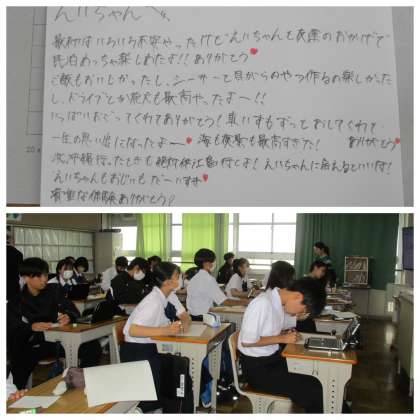 えいちゃんへ
最初はいろいろ不安やったけど えいちゃんと夜薬のおかげで
民泊めっちゃ楽しめたよ!! ありがとう♥
ご飯もおいしかったし、シーサーと貝がらのやつ作るの楽しかった
し、ドライブとか花火も最高やったよー!!
いっぱいおごってくれてありがとう! 車いすもずっとおしてくれて
一生の思い出になったよー♥ 海も夜景も最高すぎた! ありがとう♥
次沖縄行ったときも 絶対伊江島行くよ! えいちゃんに会えるといいな!
えいちゃんもおじいも だーいすき♥
貴重な体験ありがとう!